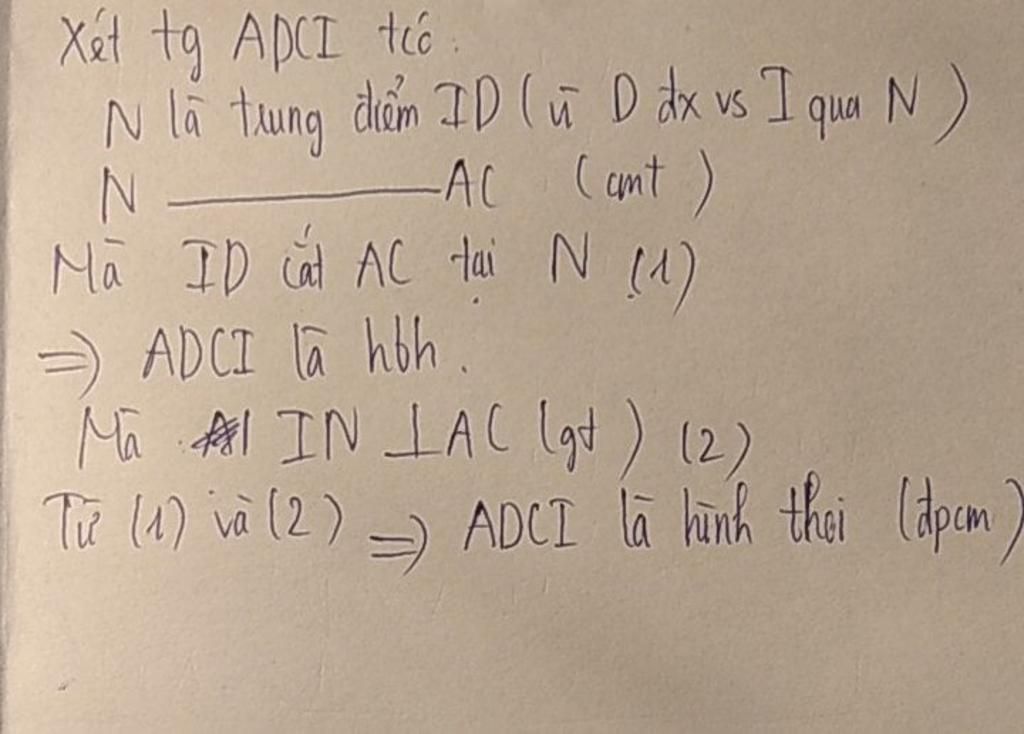 Xét tg ADCI tcó:
N là trung điểm ID (vì D đx vs I qua N)
N ———— AC (cmt)
Mà ID cắt AC tại N (1)
=> ADCI là hbh.
Mà IN ⊥ AC (gt) (2)
Từ (1) và (2) => ADCI là hình thoi (đpcm)